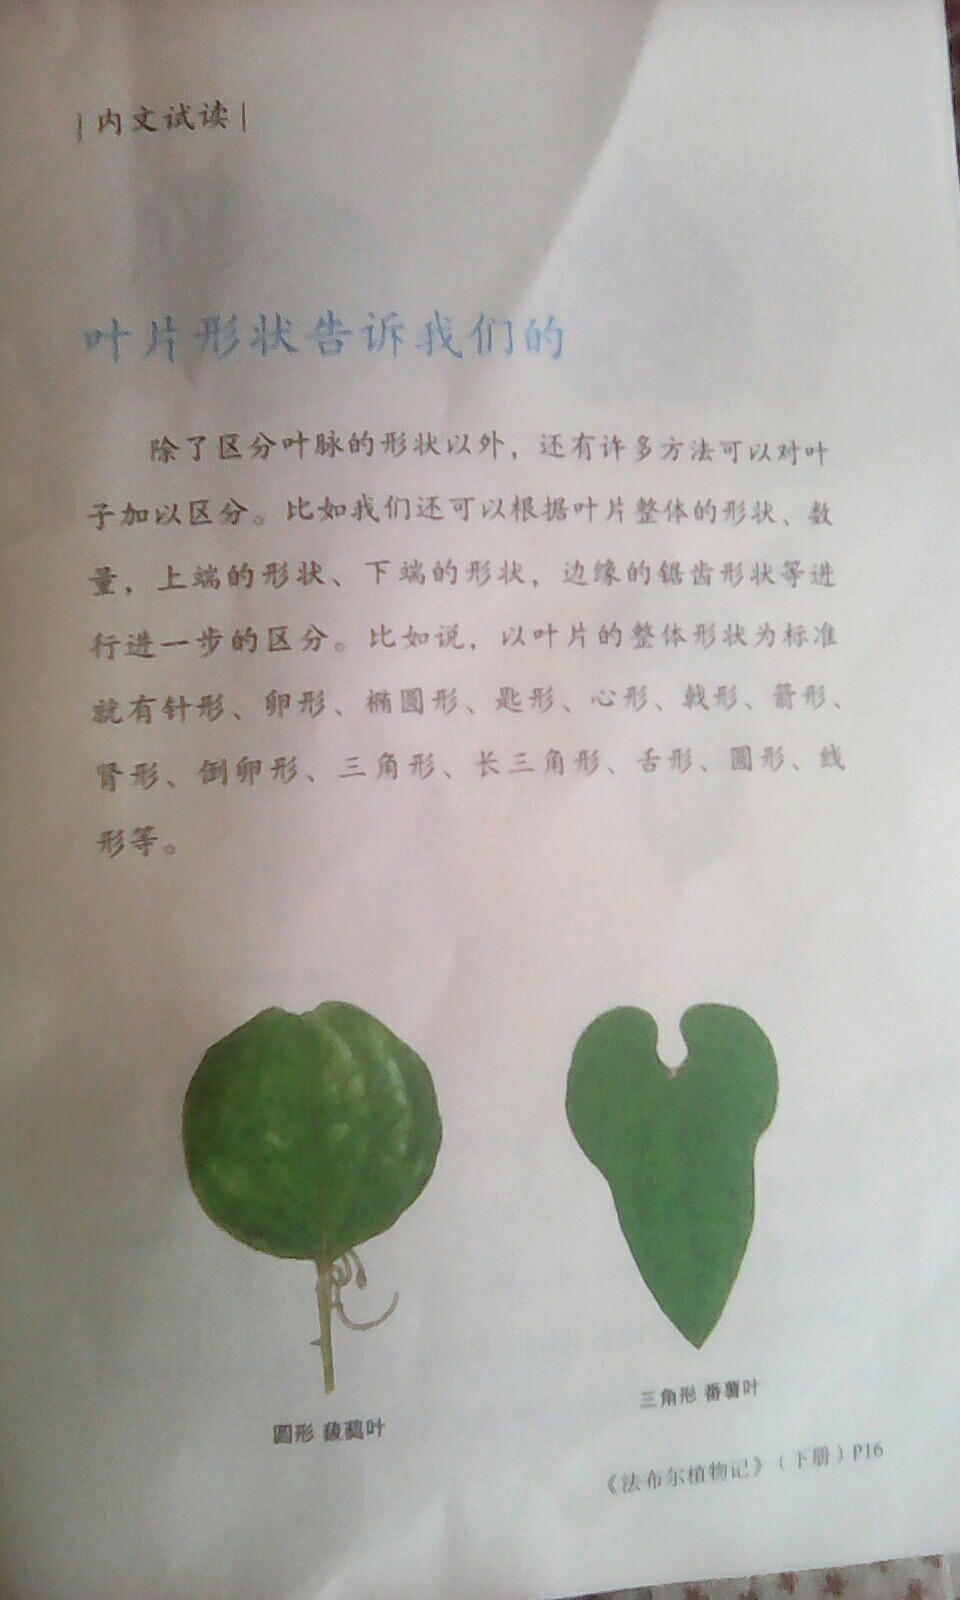 |内文试读|
叶片形状告诉我们的
除了区分叶脉的形状以外，还有许多方法可以对叶
子加以区分。比如我们还可以根据叶片整体的形状、数
量，上端的形状、下端的形状，边缘的锯齿形状等进
行进一步的区分。比如说，以叶片的整体形状为标准
就有针形、卵形、椭圆形、匙形、心形、戟形、箭形、
肾形、倒卵形、三角形、长三角形、舌形、圆形、线
形等。
圆形 菝葜叶
三角形 番薯叶
《法布尔植物记》（下册）P16